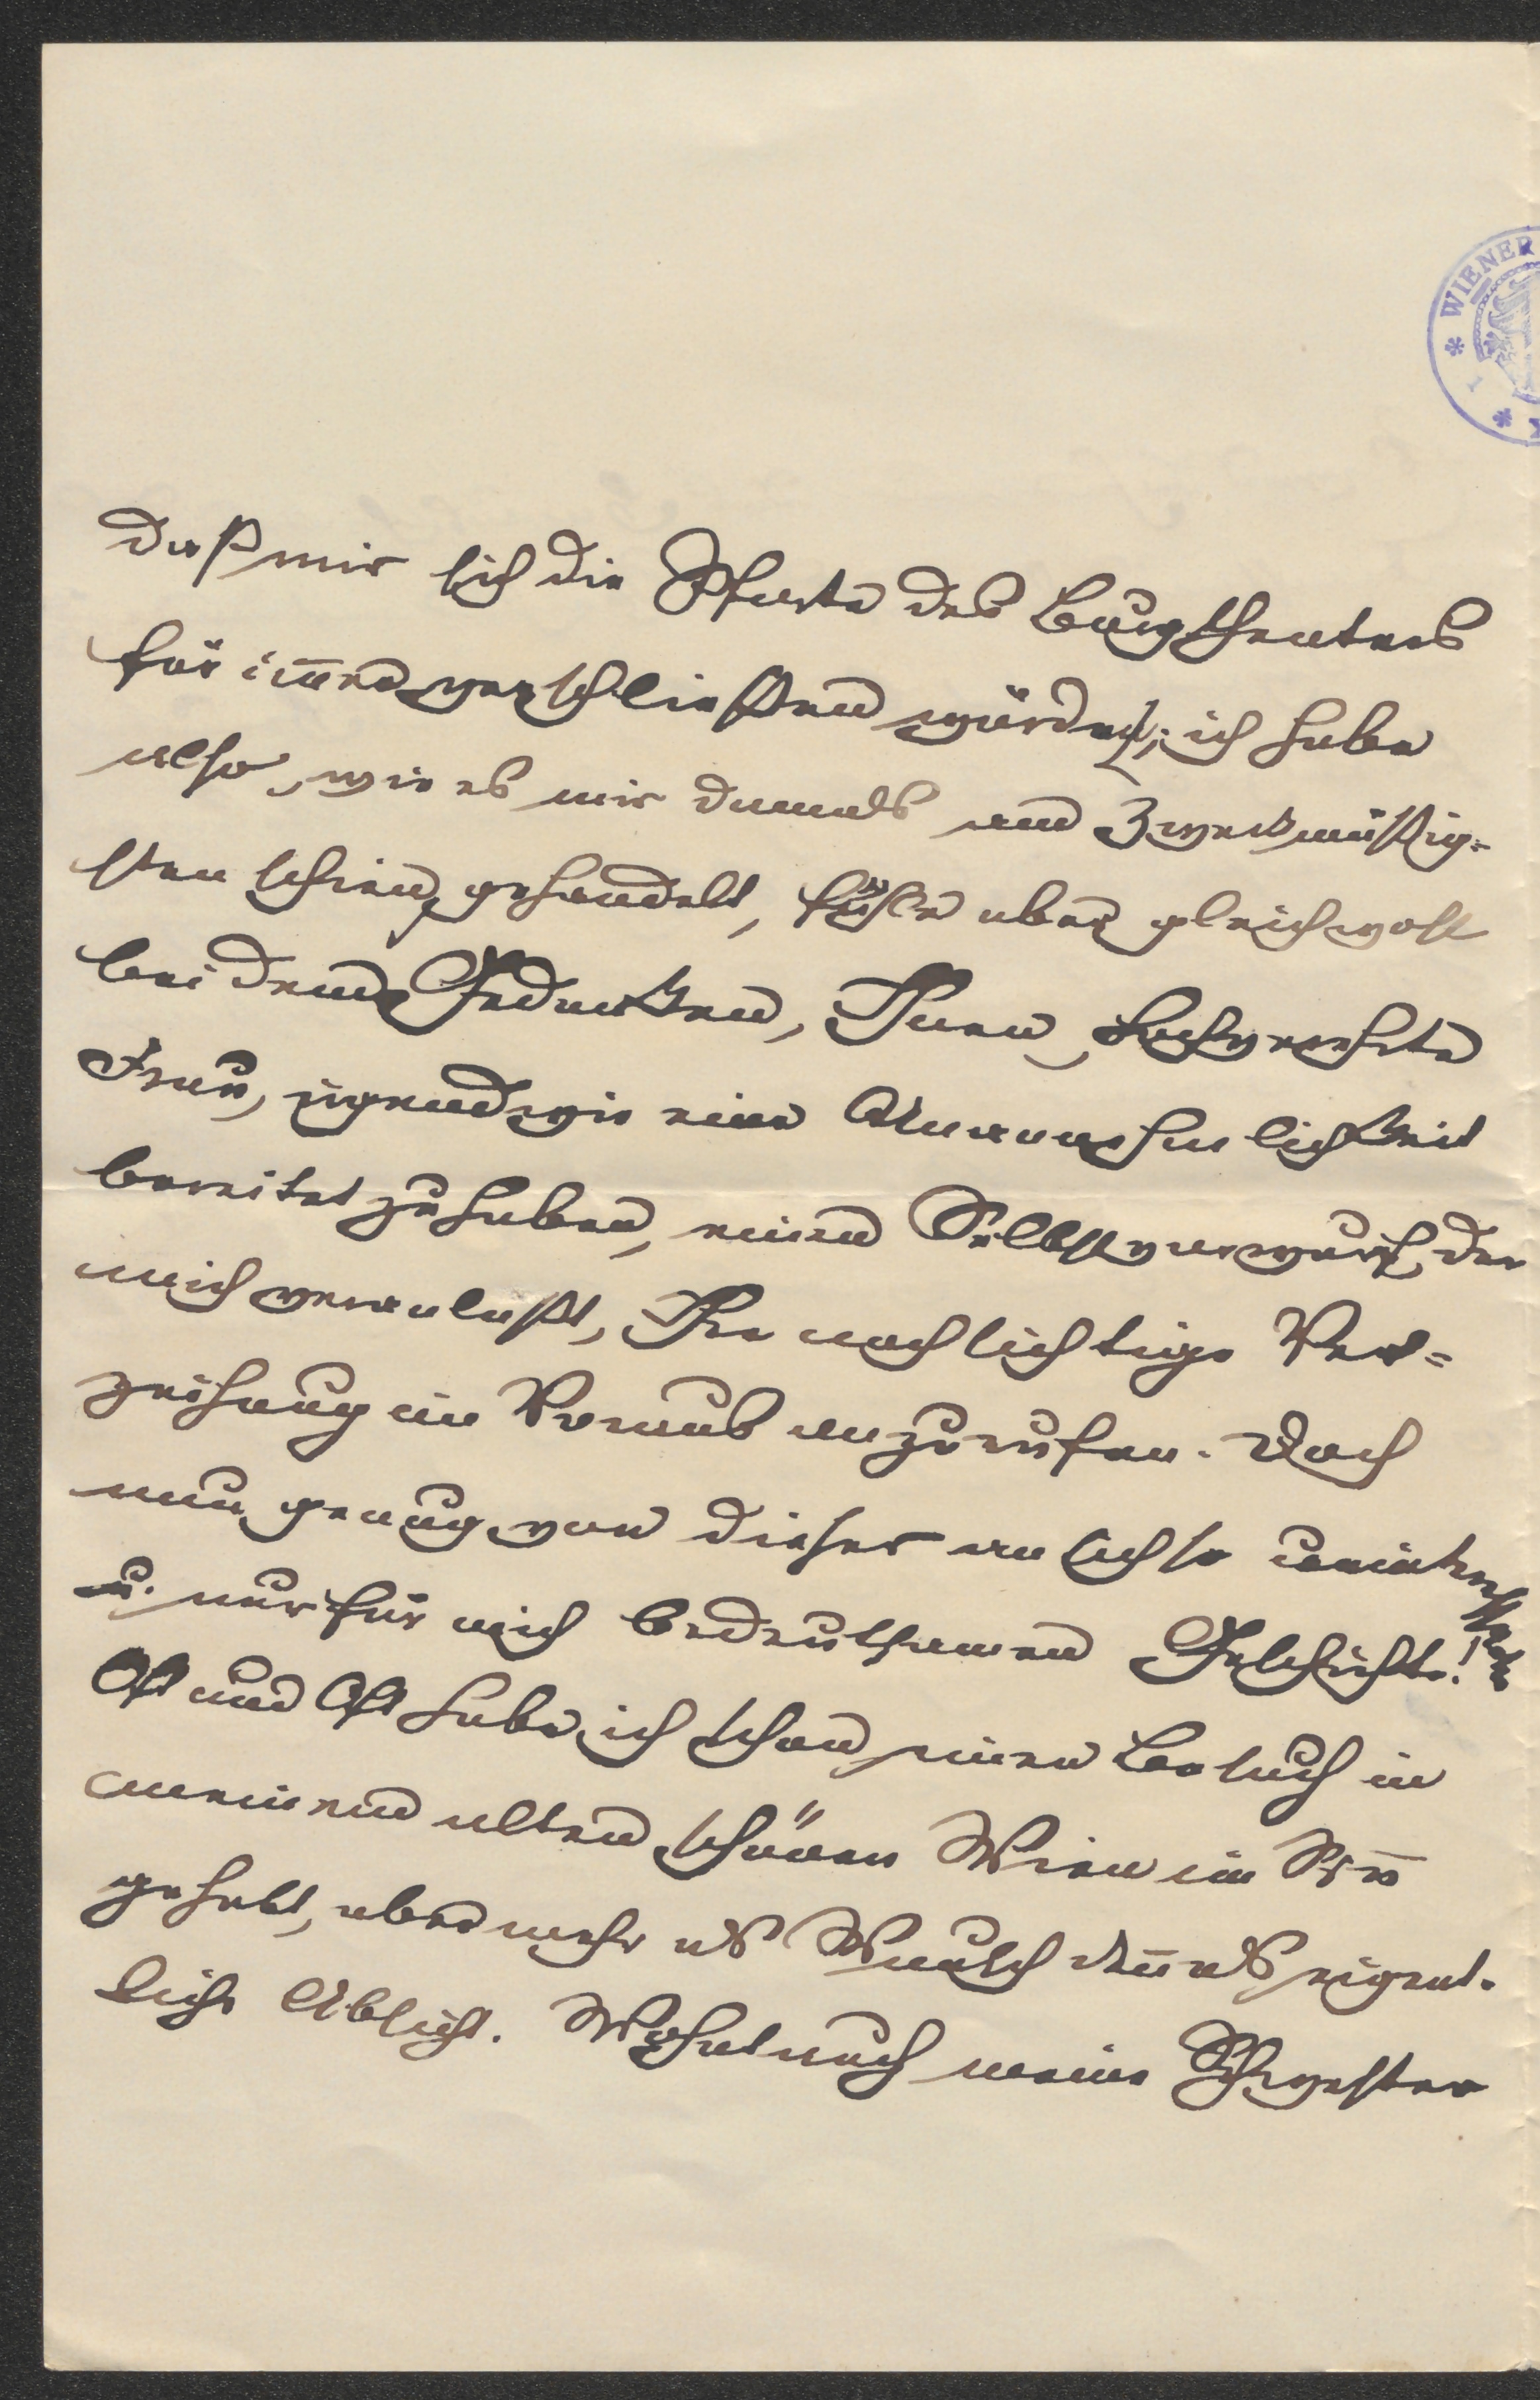 WIENER
daß mir sich die Pforte des Burgtheaters
für im̄er verschließen würde; ich habe
also, wie es mir damals am Zweckmäßig=
sten schien, gehandelt, fühle aber gleichwohl
bei dem Gedanken, Ihnen, hochverehrte
Frau, irgendwie eine Unannehmlichkeit
bereitet zu haben, einen Selbstvorwurf, der
mich veranlaßt, Ihre nachsichtige Ver=
zeihung im Voraus anzurufen. Doch
nun genug von dieser an sich so uninteressanten
u. nur für mich bedeutsamen Geschichte!
Oft und Oft habe ich schon einen Besuch in
meinem alten schönen Wien im Sin̄
gehabt, aber mehr als Wunsch den̄ als eigent=
liche Absicht. Wohnt auch meine Schwester